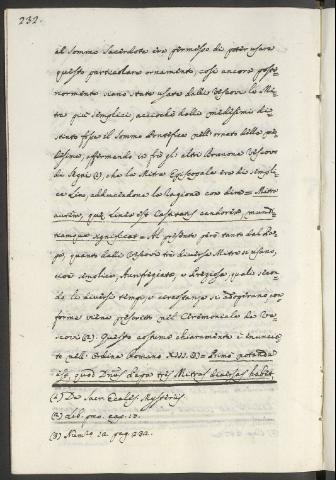 232.
al sommo Sacerdote era permesso di poter usare
questo particolare ornamento, così ancora poste-
riormente siano state usate dalli Vescovi le Mi-
tre più semplici, acciochè dalli medesimi di-
stinto fosse il Sommo Pontefice nell'ornato della me-
desima, affermando se frà gli altri Brunone Vescovo
di Segni (1), che la Mitra Episcopale era di sempli-
ce Lino, adducendone la ragione con dire = Mitra
autem, quia linea est Castitatis candorem, mund-
itiamque significat = Al presente però tanto dal Pa-
pa, quanto dalli Vescovi trè diverse Mitre si usano,
cioè semplice, Aurifrigiata, e Preziosa, quali secon-
do la diversi tempi, e circostanze si adoperano con
forme viene prescritto nel Ceremoniale de Ve-
scovi (2). Questo costume chiaramente è enuncia-
to nell'Ordine Romano XIII. (3) = Primo notandum
est, quod Dnus Papa tres Mitras diversas habet.
(1) De Sacr. Eccles. Mysteriis.
(2) Lib. pmo. cap. 17.
(3) Num. 12. pag. 232.